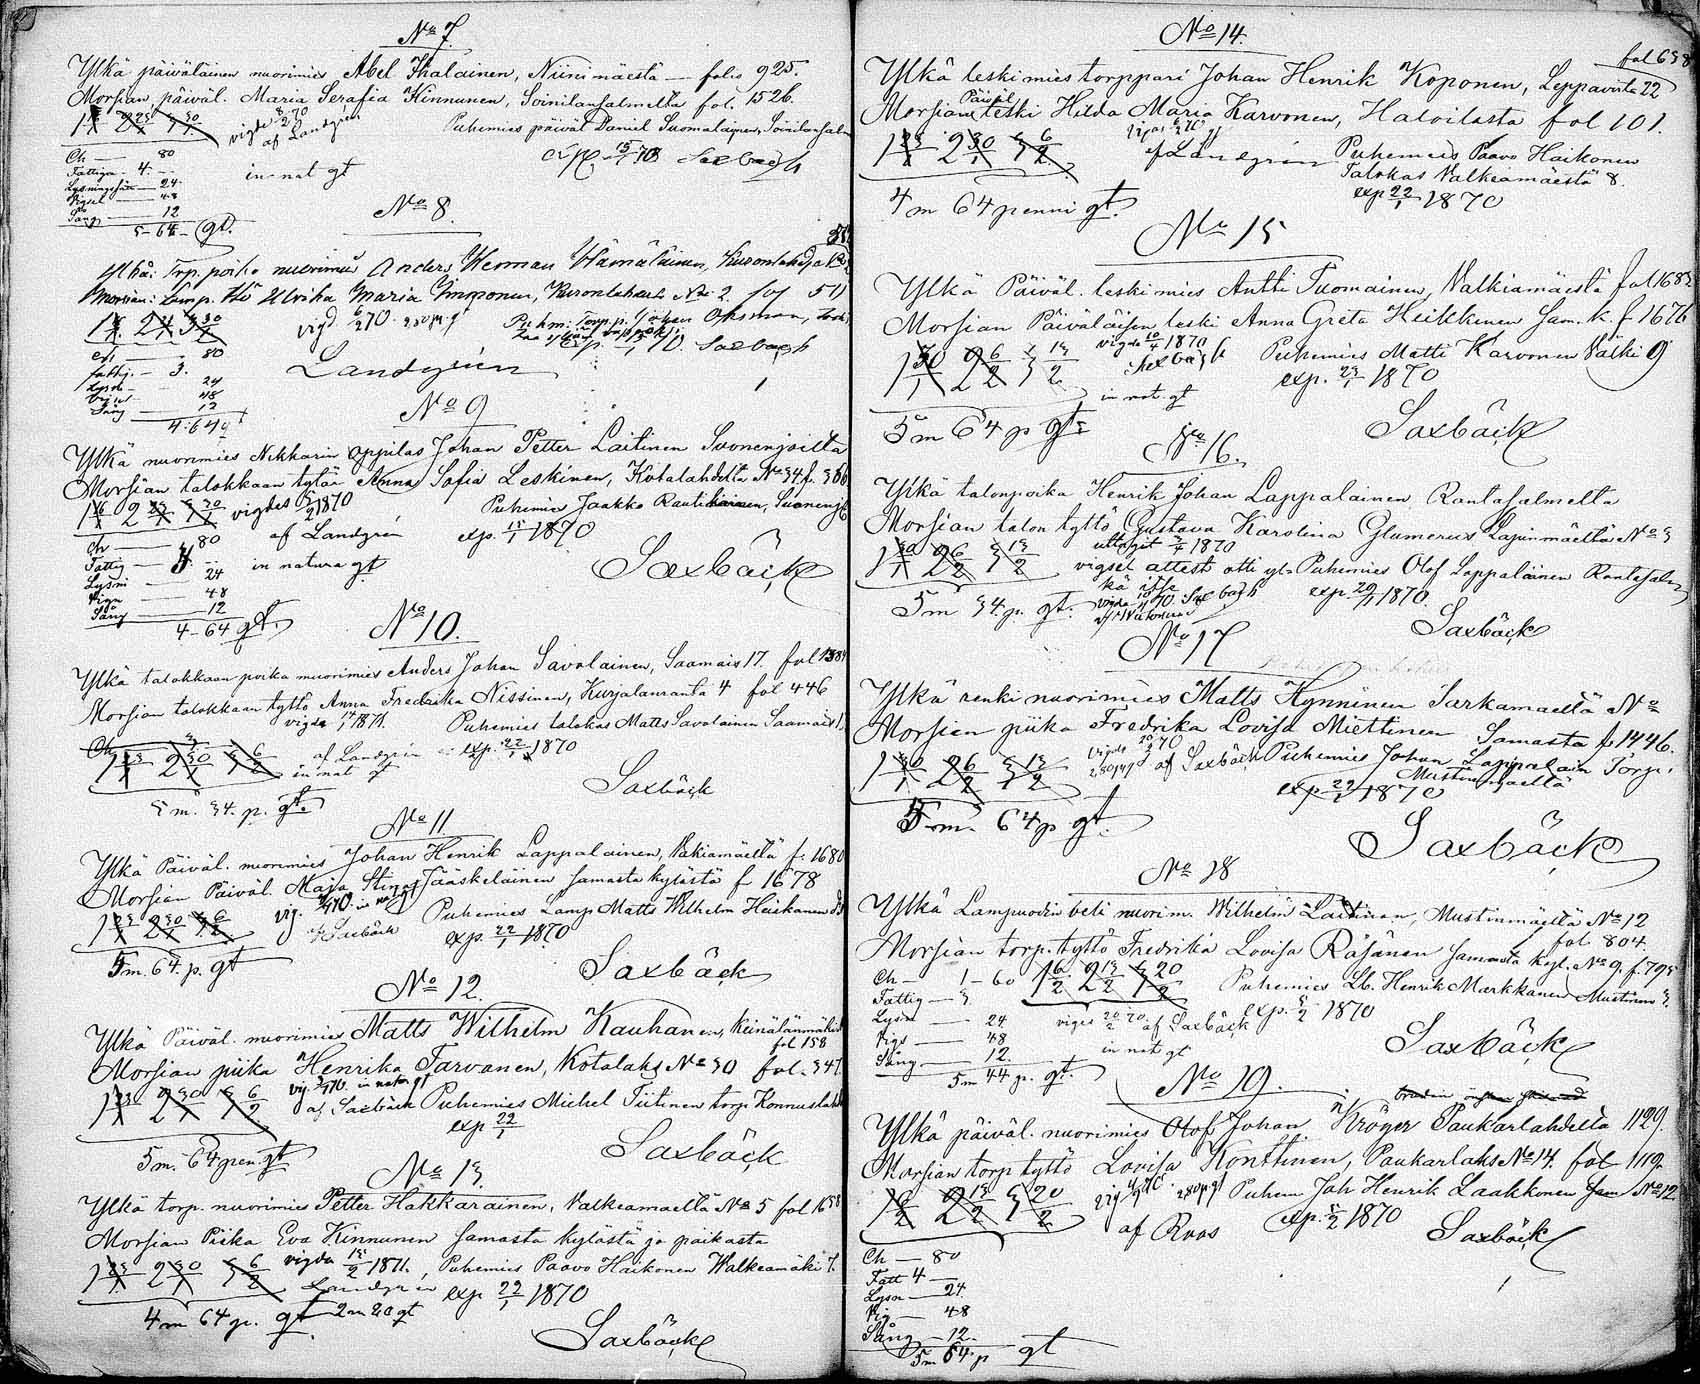 No 7.
Ylkä päiväläinen nuorimies Abel Ihalainen, Niinimäestä — folio 925.
Morsian päiväl. Maria Serafia Kinnunen, Soinilansalmelta fol. 1526.
1 23/1 2 30/1 vigde 270 af Landgren
Puhemies päiväl Daniel Suomalainen, Soinilansalm
Ch — 80
exp. 15/1 70 Saxbäck
Fattiga - 4. —
in nat gt
Lysning — 24.
Vigsel — 48
Sång — 12
5-64- gt.
No 8.
Ylkä: Trp. poika nuorimies Anders Herman Hämäläinen, Kuronlahdesta No 2
Morsian: Lamp. ttö Ulrika Maria Immonen, Kuronlahdesta No 2. fol 511
vigd. 6/2 70. 280 p. gt
Puhm: Torp.p. Johan Ohsman,
exp. 15/1 70. Saxbäck
Ch — 80
fattig. — 3.
Landgrén
Lysn — 24
Vign — 48
Sång — 12
4:64 gt
No 9
Ylkä nuorimies Nikkarin oppilas Johan Petter Laitinen Suonenjoilta
Morsian talokkaan tytär Anna Sofia Leskinen, Kotalahdelta No 34. f. 366
1 16/1 2 23/1 3 30/1 vigdes 5/2 1870
Puhemies Jaakko Rautiainen, Suonenj
Ch — 80
af Landgrén
exp. 15/1 1870
Fattig — 3. —
in natura gt
Saxbäck
Lysni — 24
Vign — 48
Sång — 12
4-64 gt.
No 10.
Ylkä talokkaan poika nuorimies Anders Johan Savolainen, Saamais 17. fol 1384
Morsian talokkaan tyttö Anna Fredrika Nissinen, Kurjalanranta 4 fol 446
vigda 1871.
Puhemies talokas Matts Savolainen Saamais
1 23/1 2 30/1 3 6/2
af Landgrén
exp. 22/1 1870
in nat gt
Saxbäck
5 m. 34. p. gt.
No 11
Ylkä Päiväl. nuorimies Johan Henrik Lappalainen, Valkiamäeltä f. 1680
Morsian Päiväl. Maja Stina Jääskeläinen samasta kylästä f 1678
1 23/1 2 30/1 3 6/2 vig. in nat gt
Puhemies Lamp Matts Wilhelm Heiskanen
af Saxbäck
exp. 22/1 1870
5 m. 64. p. gt
Saxbäck
No 12.
Ylkä Päiväl. nuorimies Matts Wilhelm Kauhanen, Keinälänmäki
fol 158
Morsian piika Henrika Tarvanen, Kotalaks No 30 fol. 347.
1 23/1 2 30/1 3 6/2 vig. in natur gt
af Saxbäck Puhemies Michel Tiitinen torp. Konnuslahd
exp 22/1
5 m. 64 pen. gt
Saxbäck
No 13.
Ylkä torp. nuorimies Petter Hakkarainen, Valkeamaeltä No 5 fol 1658
Morsian Piika Eva Kinnunen samasta kylästä ja paikasta
1 23/1 2 30/1 3 6/2 vigda 13/2 1871, Puhemies Paavo Haikonen Walkeamäki 7.
Landgrén exp 22/1 1870
4 m 64 p. gt 2 m 80 gt
Saxbäck
No 14.
fol 638
Ylkä leskimies torppari Johan Henrik Koponen, Leppävirta 22
Päiväl
Morsian leski Hilda Maria Karvonen, Haloilasta fol 101.
1 23/1 2 30/1 3 6/2
af Landgrén Puhemies Paavo Haikonen
Talokas Valkeamäestä 8.
4 m 64 penni gt.
exp 22/1 1870
No 15
Ylkä Päiväl. leskimies Antti Tuomainen, Valkiamäestä fol 1682
Morsian Päiväläisen leski Anna Greta Heikkinen sam. k. f 1676
vigda 10/4 1870
1 30/1 2 6/2 3 13/2 Saxbäck
Puhemies Matti Karvonen Välki 9
exp. 23/1 1870
in nat. gt
5 m 64 p gt
Saxbäck
No 16.
Ylkä talonpoika Henrik Johan Lappalainen Rantasalmelta
Morsian talon tyttö Gustava Karolina Glumerus Lajunmäeltä No 3
uttagit 3/4 1870
1 30/1 2 6/2 3 13/2 vigsel attest otti yl-
Puhemies Olof Lappalainen Rantasalm
kä itse
exp. 29/1 1870.
5 m 34. p. gt.
Saxbäck
No 17
Ylkä renki nuorimies Matts Hynninen Sarkamaeltä No
Morsian piika Fredrika Lovisa Miettinen Samasta f. 1446.
1 30/1 2 6/2 3 13/2 vigde 70 280 p gt af Saxbäck Puhemies Johan Lappalain Torp.
Mustinmaeltä
exp 29/1 1870
5 m. 64 p gt.
Saxbäck
No 18
Ylkä Lampuodin veli nuorim. Wilhelm Laitinen, Mustinmäeltä No 12
fol 804.
Morsian torp. tyttö Fredrika Lovisa Räsänen samasta kyl. No 9. f. 795
Ch — 1 - 60 1 6/2 2 13/2 3 20/2
Puhemies Lb. Henrik Markkanen Mustinm 3
Fattig — 3
exp. 5/2 1870
Lysn — 24
viges 20/2 70. af Saxbäck
Vigs — 48
in nat gt
Saxbäck
Sång — 12.
5 m 44 p. gt.
No 19.
Ylkä päiväl. nuorimies Olof Johan Kröger Paukarlahdelta 1129.
Morsian torp tyttö Lovisa Konttinen, Paukarlaks No 14. fol 1119.
1 6/2 2 13/2 3 20/2 280 p gt
Puhem Joh Henrik Laakkonen sam No 12
af Roos
exp. 5/2 1870
Saxbäck
Ch — 80
Fatt 4 —
Lysn — 24.
Vig — 48
Sång — 12.
5 m 64 p gt